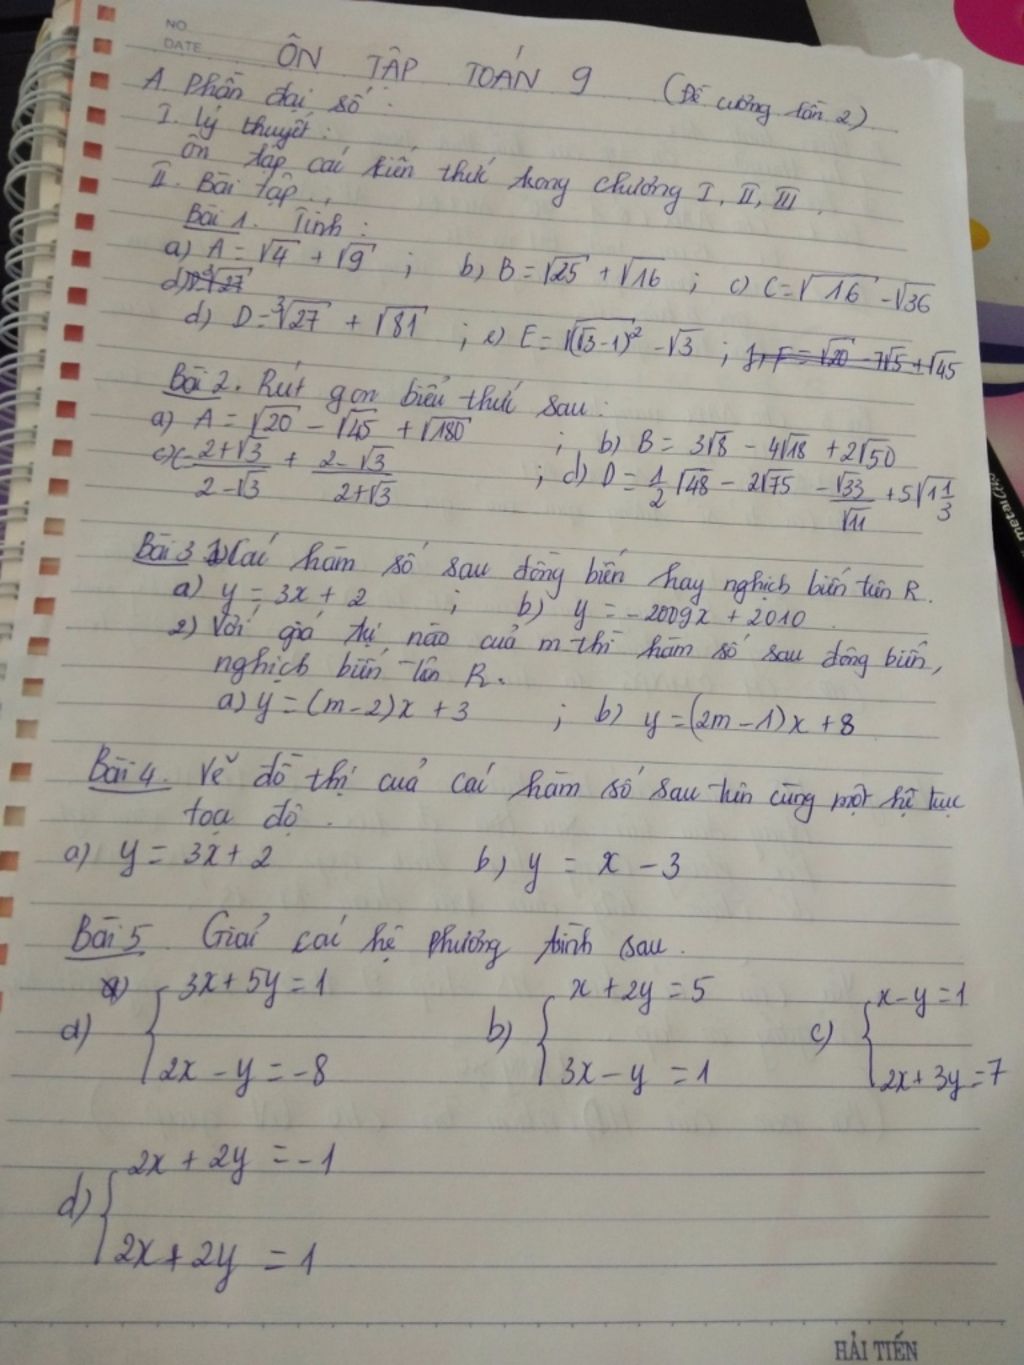 NO
DATE
ÔN TẬP TOÁN 9 (Đề cương lần 2)
A. Phần đại số:
I. Lý thuyết:
Ôn tập các kiến thức trong chương I, II, III.
II. Bài tập.
Bài 1. Tính:
a) A = √4 + √9 ; b) B = √25 + √16 ; c) C = √16 - √36
d) D = ∛27 + √81 ; e) E = √(√3-1)² - √3 ; f, F = √20 - 7√5 + √45
Bài 2. Rút gọn biểu thức sau:
a) A = √20 - √45 + √180 ; b) B = 3√8 - 4√18 + 2√50
c) (2+√3)/(2-√3) + (2-√3)/(2+√3) ; d) D = 1/2 √48 - 2√75 - √33/√11 + 5√1 1/3
Bài 3 1) Các hàm số sau đồng biến hay nghịch biến trên R.
a) y = 3x + 2 ; b) y = -2009x + 2010
2) Với giá trị nào của m thì hàm số sau đồng biến,
nghịch biến trên R.
a) y = (m-2)x + 3 ; b) y = (2m-1)x + 8
Bài 4. Vẽ đồ thị của các hàm số sau trên cùng một hệ trục
tọa độ.
a) y = 3x + 2 b) y = x - 3
Bài 5. Giải các hệ phương trình sau.
a) { 3x + 5y = 1 b) { x + 2y = 5 c) { x - y = 1
2x - y = -8 3x - y = 1 2x + 3y = 7
d) { 2x + 2y = -1
2x + 2y = 1
HẢI TIẾN